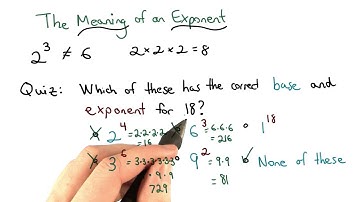 The Meaning of an Exponent
2³ ≠ 6 2×2×2=8
Quiz: Which of these has the correct base and
exponent for 18?
2⁴ =2·2·2·2 =16 6³ =6·6·6 =216 1¹⁸
3⁶ =3·3·3·3·3 ·9·9 729 9² =9·9 =81 None of these